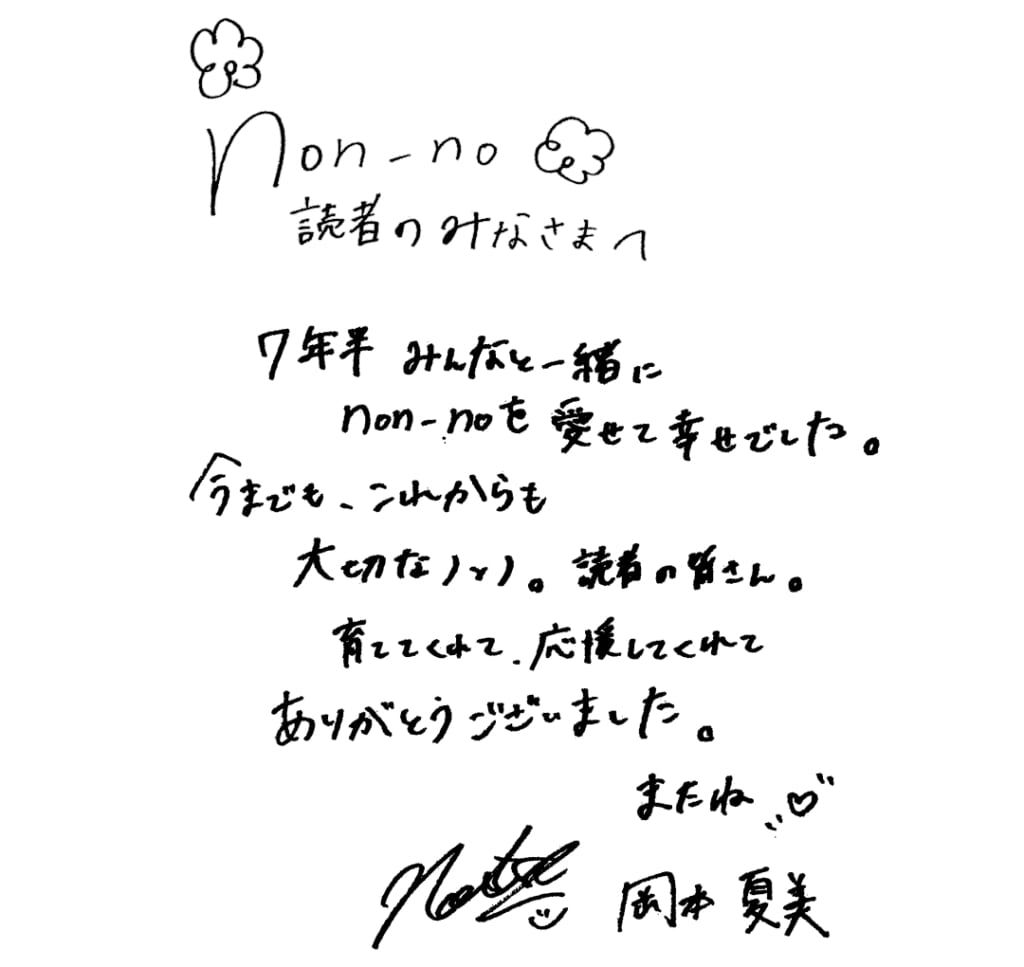 non-no
読者のみなさまへ
7年半 みんなと一緒に
non-noを愛せて幸せでした。
今までも、これからも
大切な人々。読者の皆さん。
育ててくれて、応援してくれて
ありがとうございました。
またね♡
岡本夏美